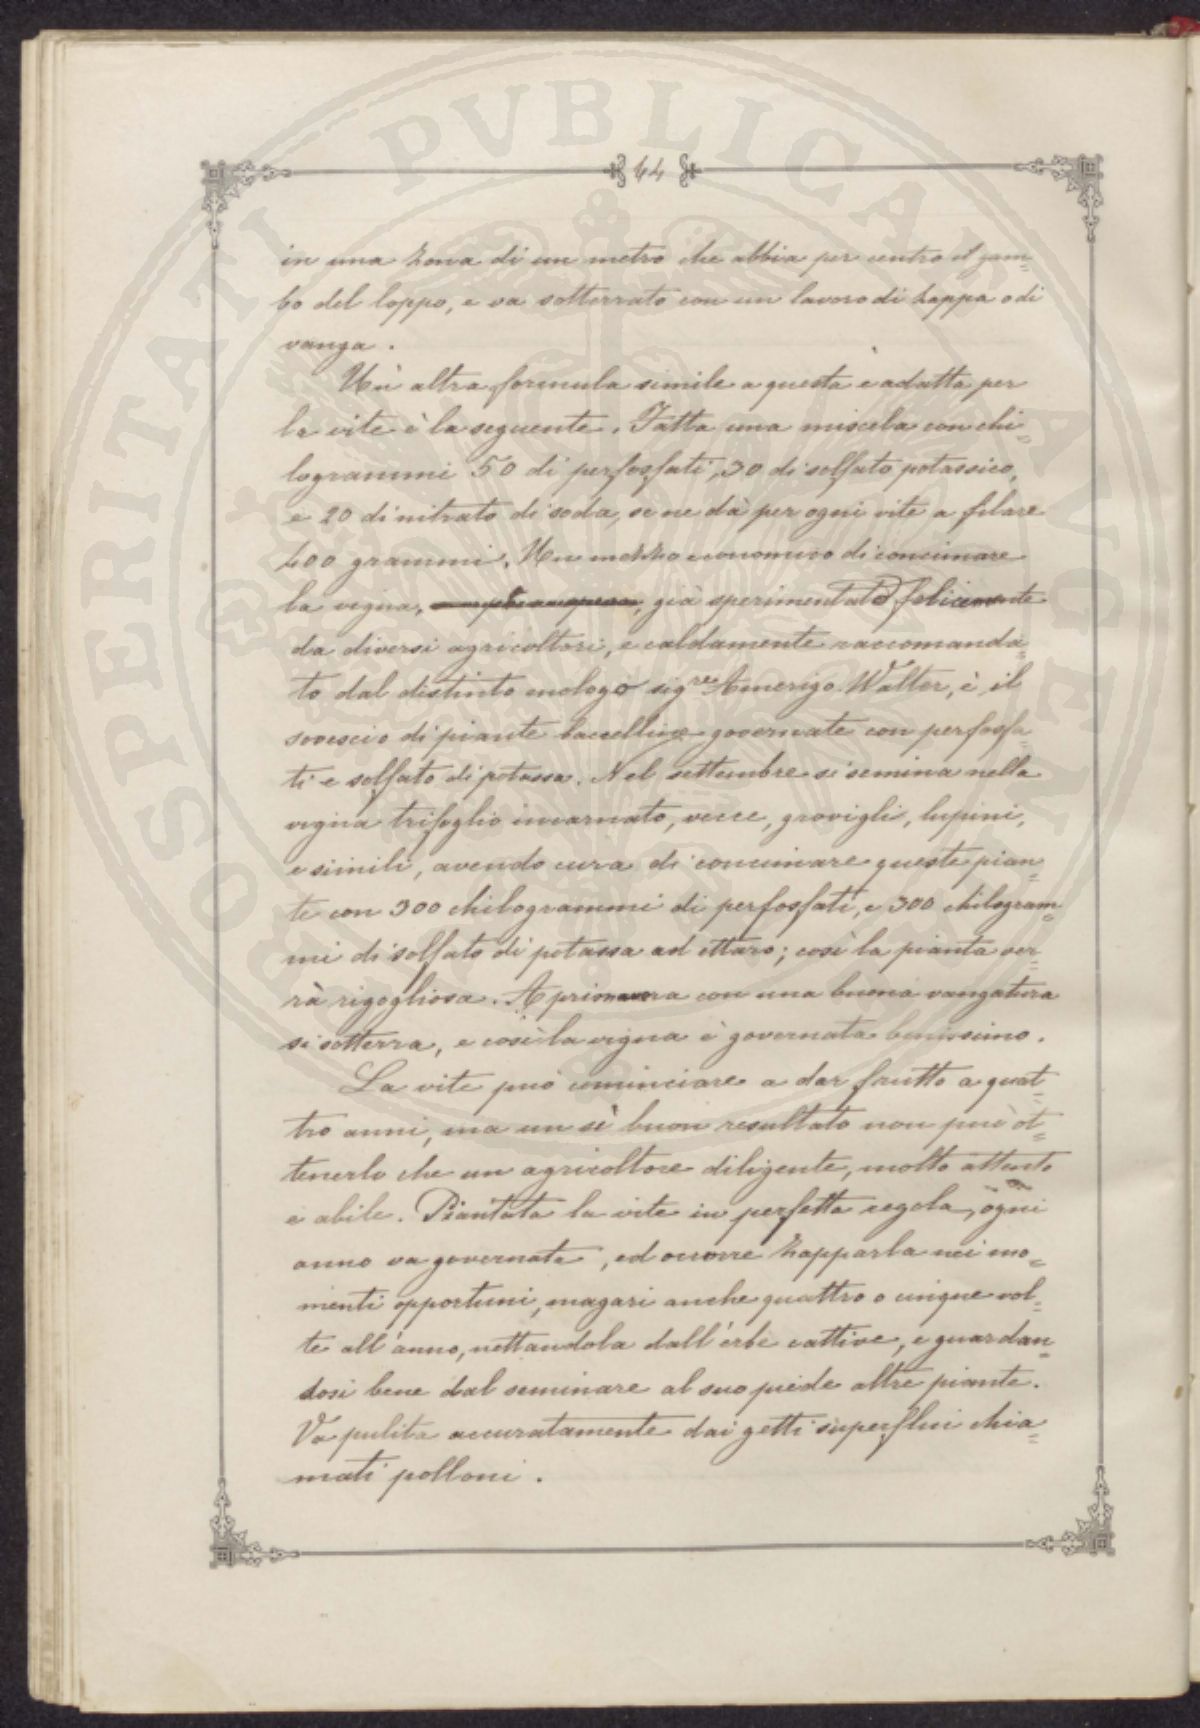 64
in una zona di un metro che abbia per centro il gam=
bo del loppo, e va sotterrato con un lavoro di zappa o di
vanga.
Un' altra formula simile a questa è adatta per
la vite è la seguente. Fatta una miscela con chi=
logrammi 50 di perfosfati, 30 di solfato potassico,
e 20 di nitrato di soda, se ne dà per ogni vite a filare
400 grammi. Un mezzo economico di concimare
la vigna, già sperimentato felicemente
da diversi agricoltori, e caldamente raccomanda=
to dal distinto enologo sig.re Amerigo Walter, è il
sovescio di piante baccelline governate con perfosfa=
ti e solfato di potassa. Nel settembre si semina nella
vigna trifoglio incarnato, vecce, grovigli, lupini,
e simili, avendo cura di concimare queste pian=
te con 300 chilogrammi di perfosfati, e 300 chilogram=
mi di solfato di potassa ad ettaro; così la pianta ver=
rà rigogliosa. A primavera con una buona vangatura
si sotterra, e così la vigna è governata benissimo.
La vite può cominciare a dar frutto a quat=
tro anni, ma un sì buon resultato non può ot=
tenerlo che un agricoltore diligente, molto attento
e abile. Piantata la vite in perfetta regola, ogni
anno va governata, ed occorre zapparla nei mo=
menti opportuni, magari anche quattro o cinque vol=
te all'anno, nettandola dall'erbe cattive, e guardan=
dosi bene dal seminare al suo piede altre piante.
Va pulita accuratamente dai getti superflui chia=
mati polloni.
SPERITATI PVBLICAE AVGENDAE